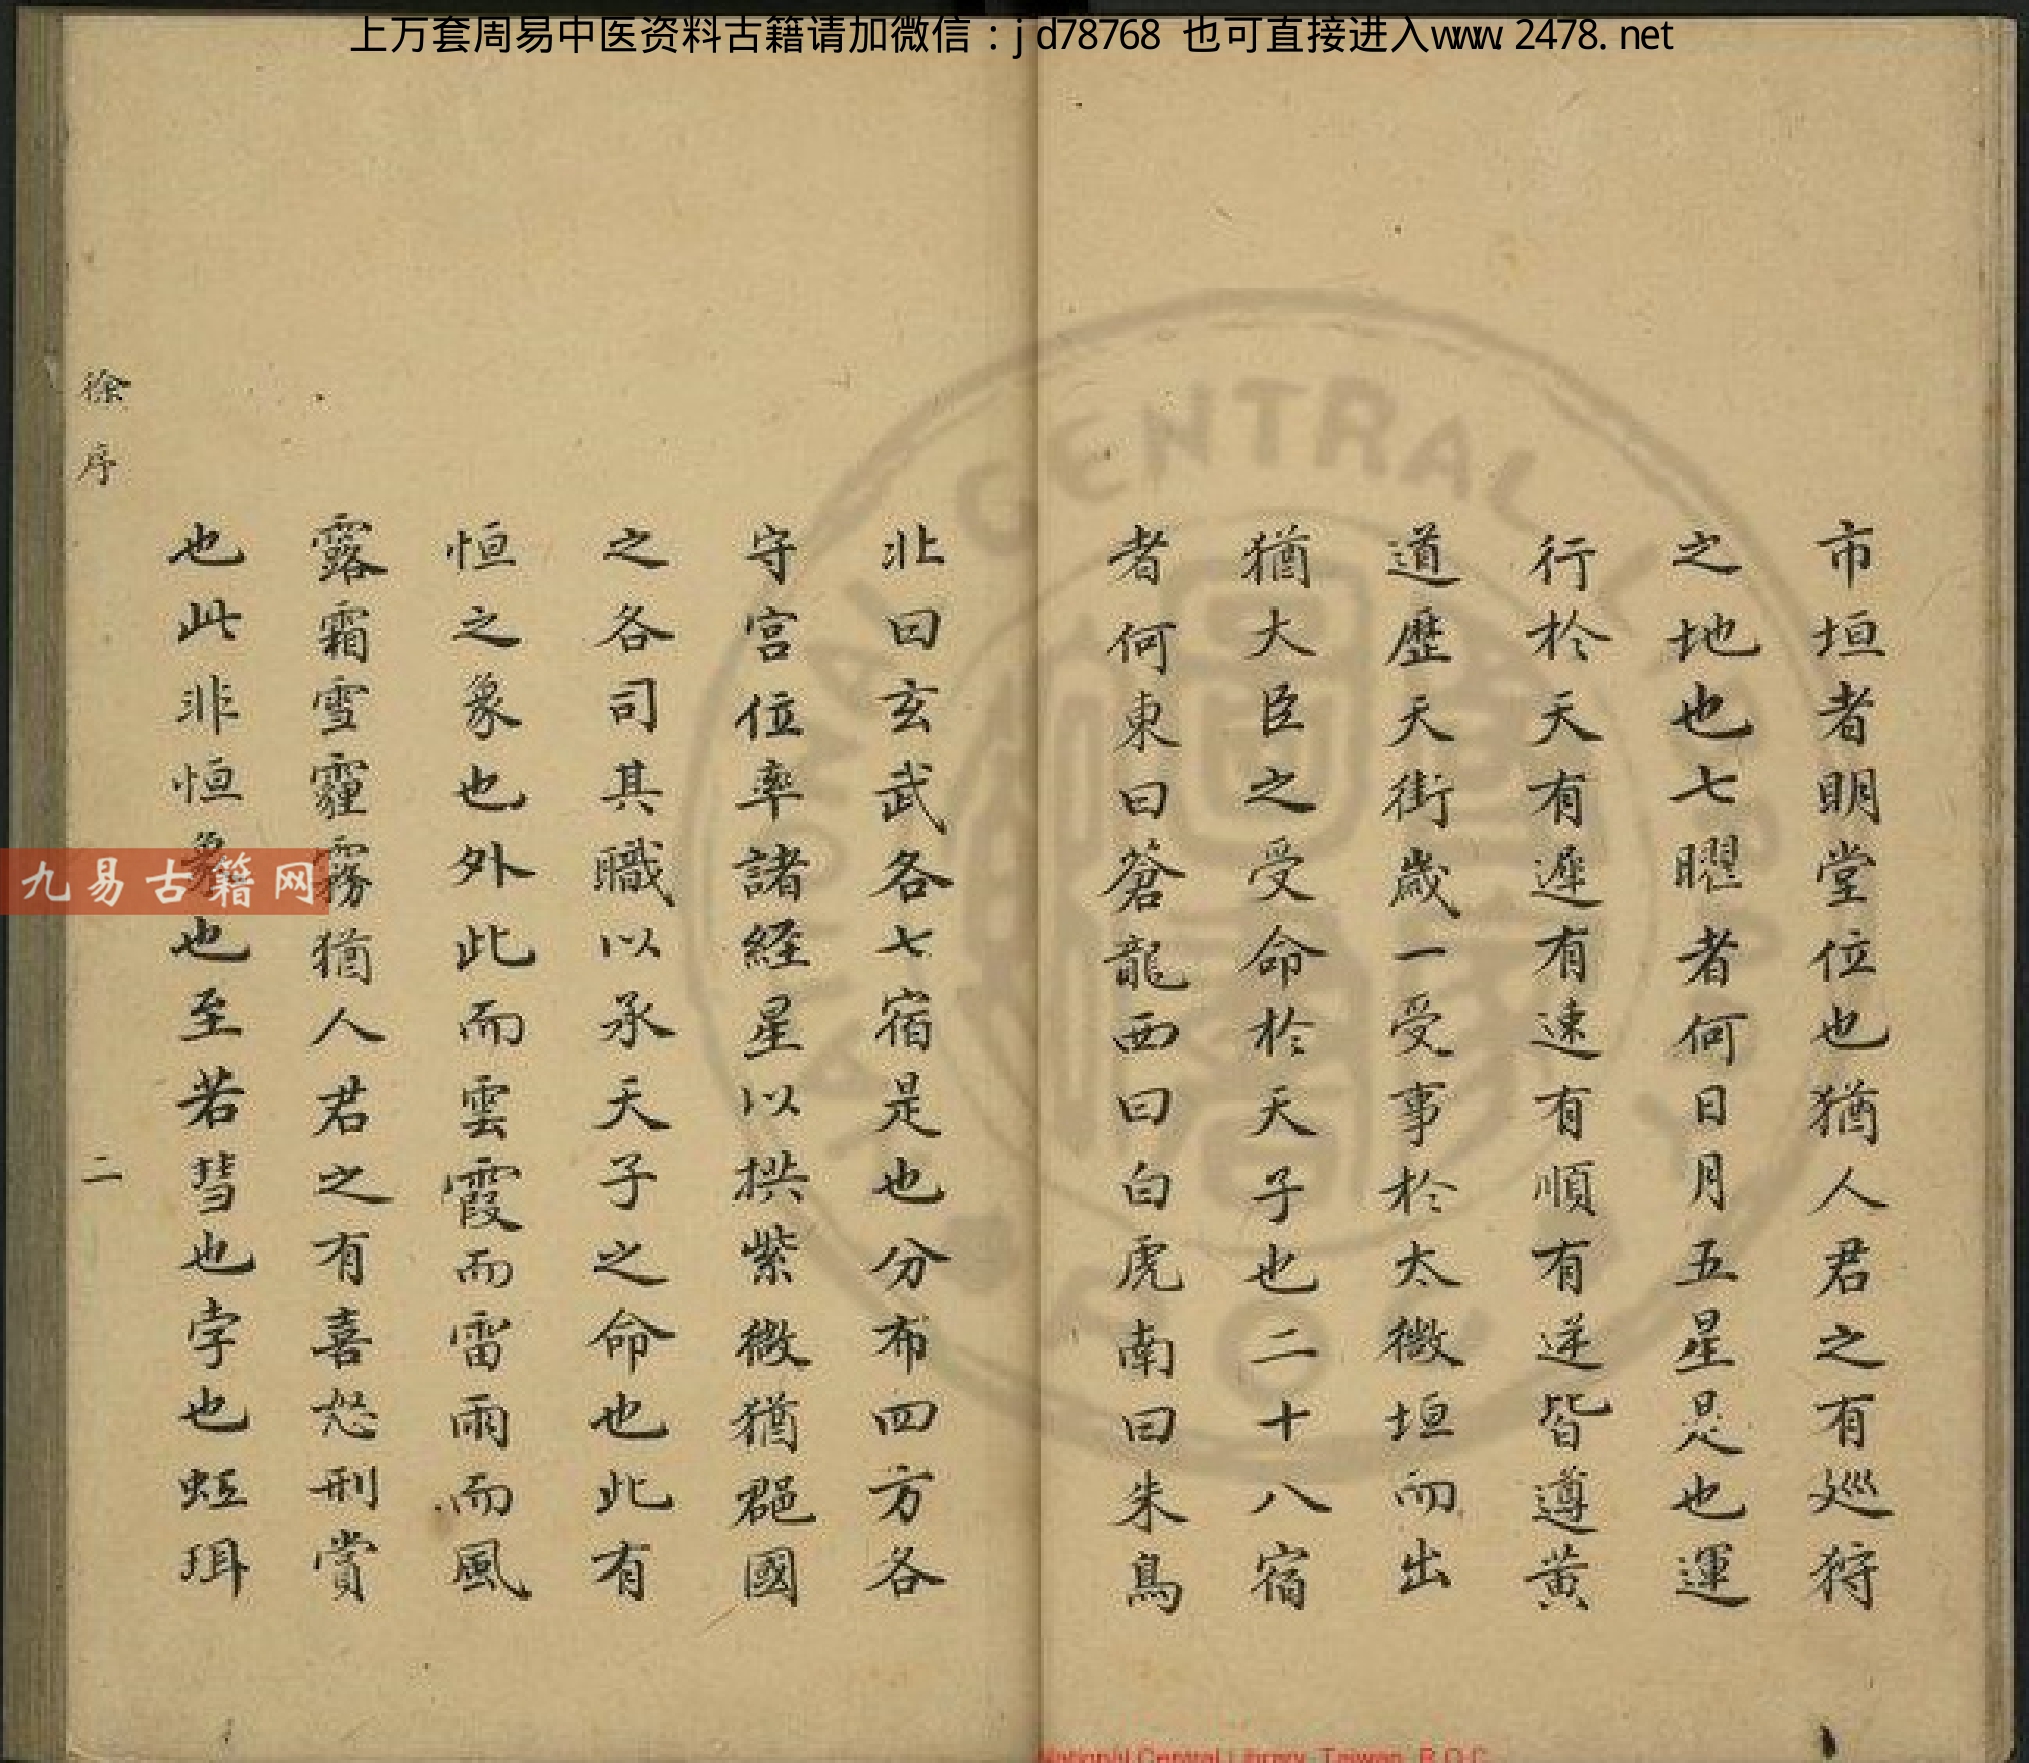 上万套周易中医资料古籍请加微信：jd78768 也可直接进入www.2478.net
市垣者明堂位也猶人君之有廵狩
之地也七曜者何日月五星是也運
行於天有遲有速有順有逆皆遵黃
道歷天街歲一受事於太微垣而出
猶大臣之受命於天子也二十八宿
者何東曰蒼龍西曰白虎南曰朱鳥
北曰玄武各七宿是也分布四方各
守宮位率諸經星以拱紫微猶郡國
之各司其職以承天子之命也此有
恒之象也外此而雲霞而雷雨而風
露霜雪霾霧猶人君之有喜怒刑賞
也此非恒象也至若彗也孛也虹珥
徐序
二
九易古籍网
National Central Library, Taiwan, R.O.C